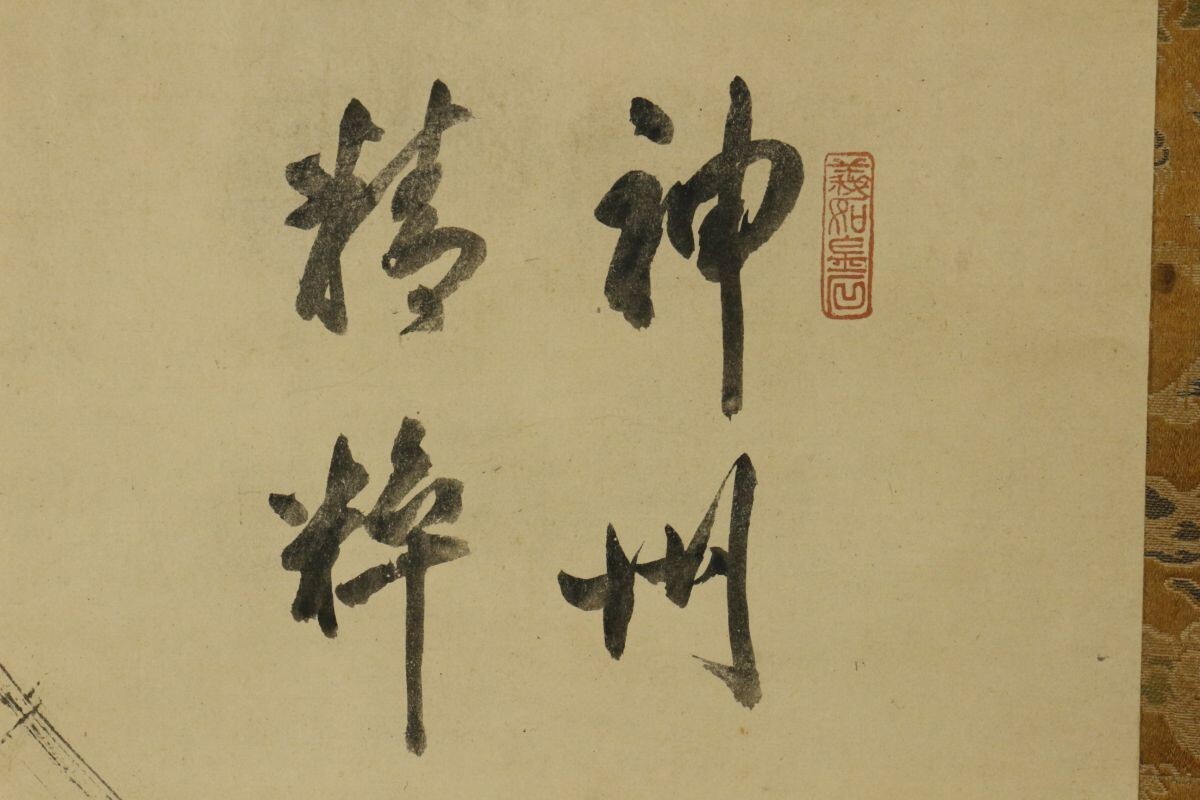 神州
精粋